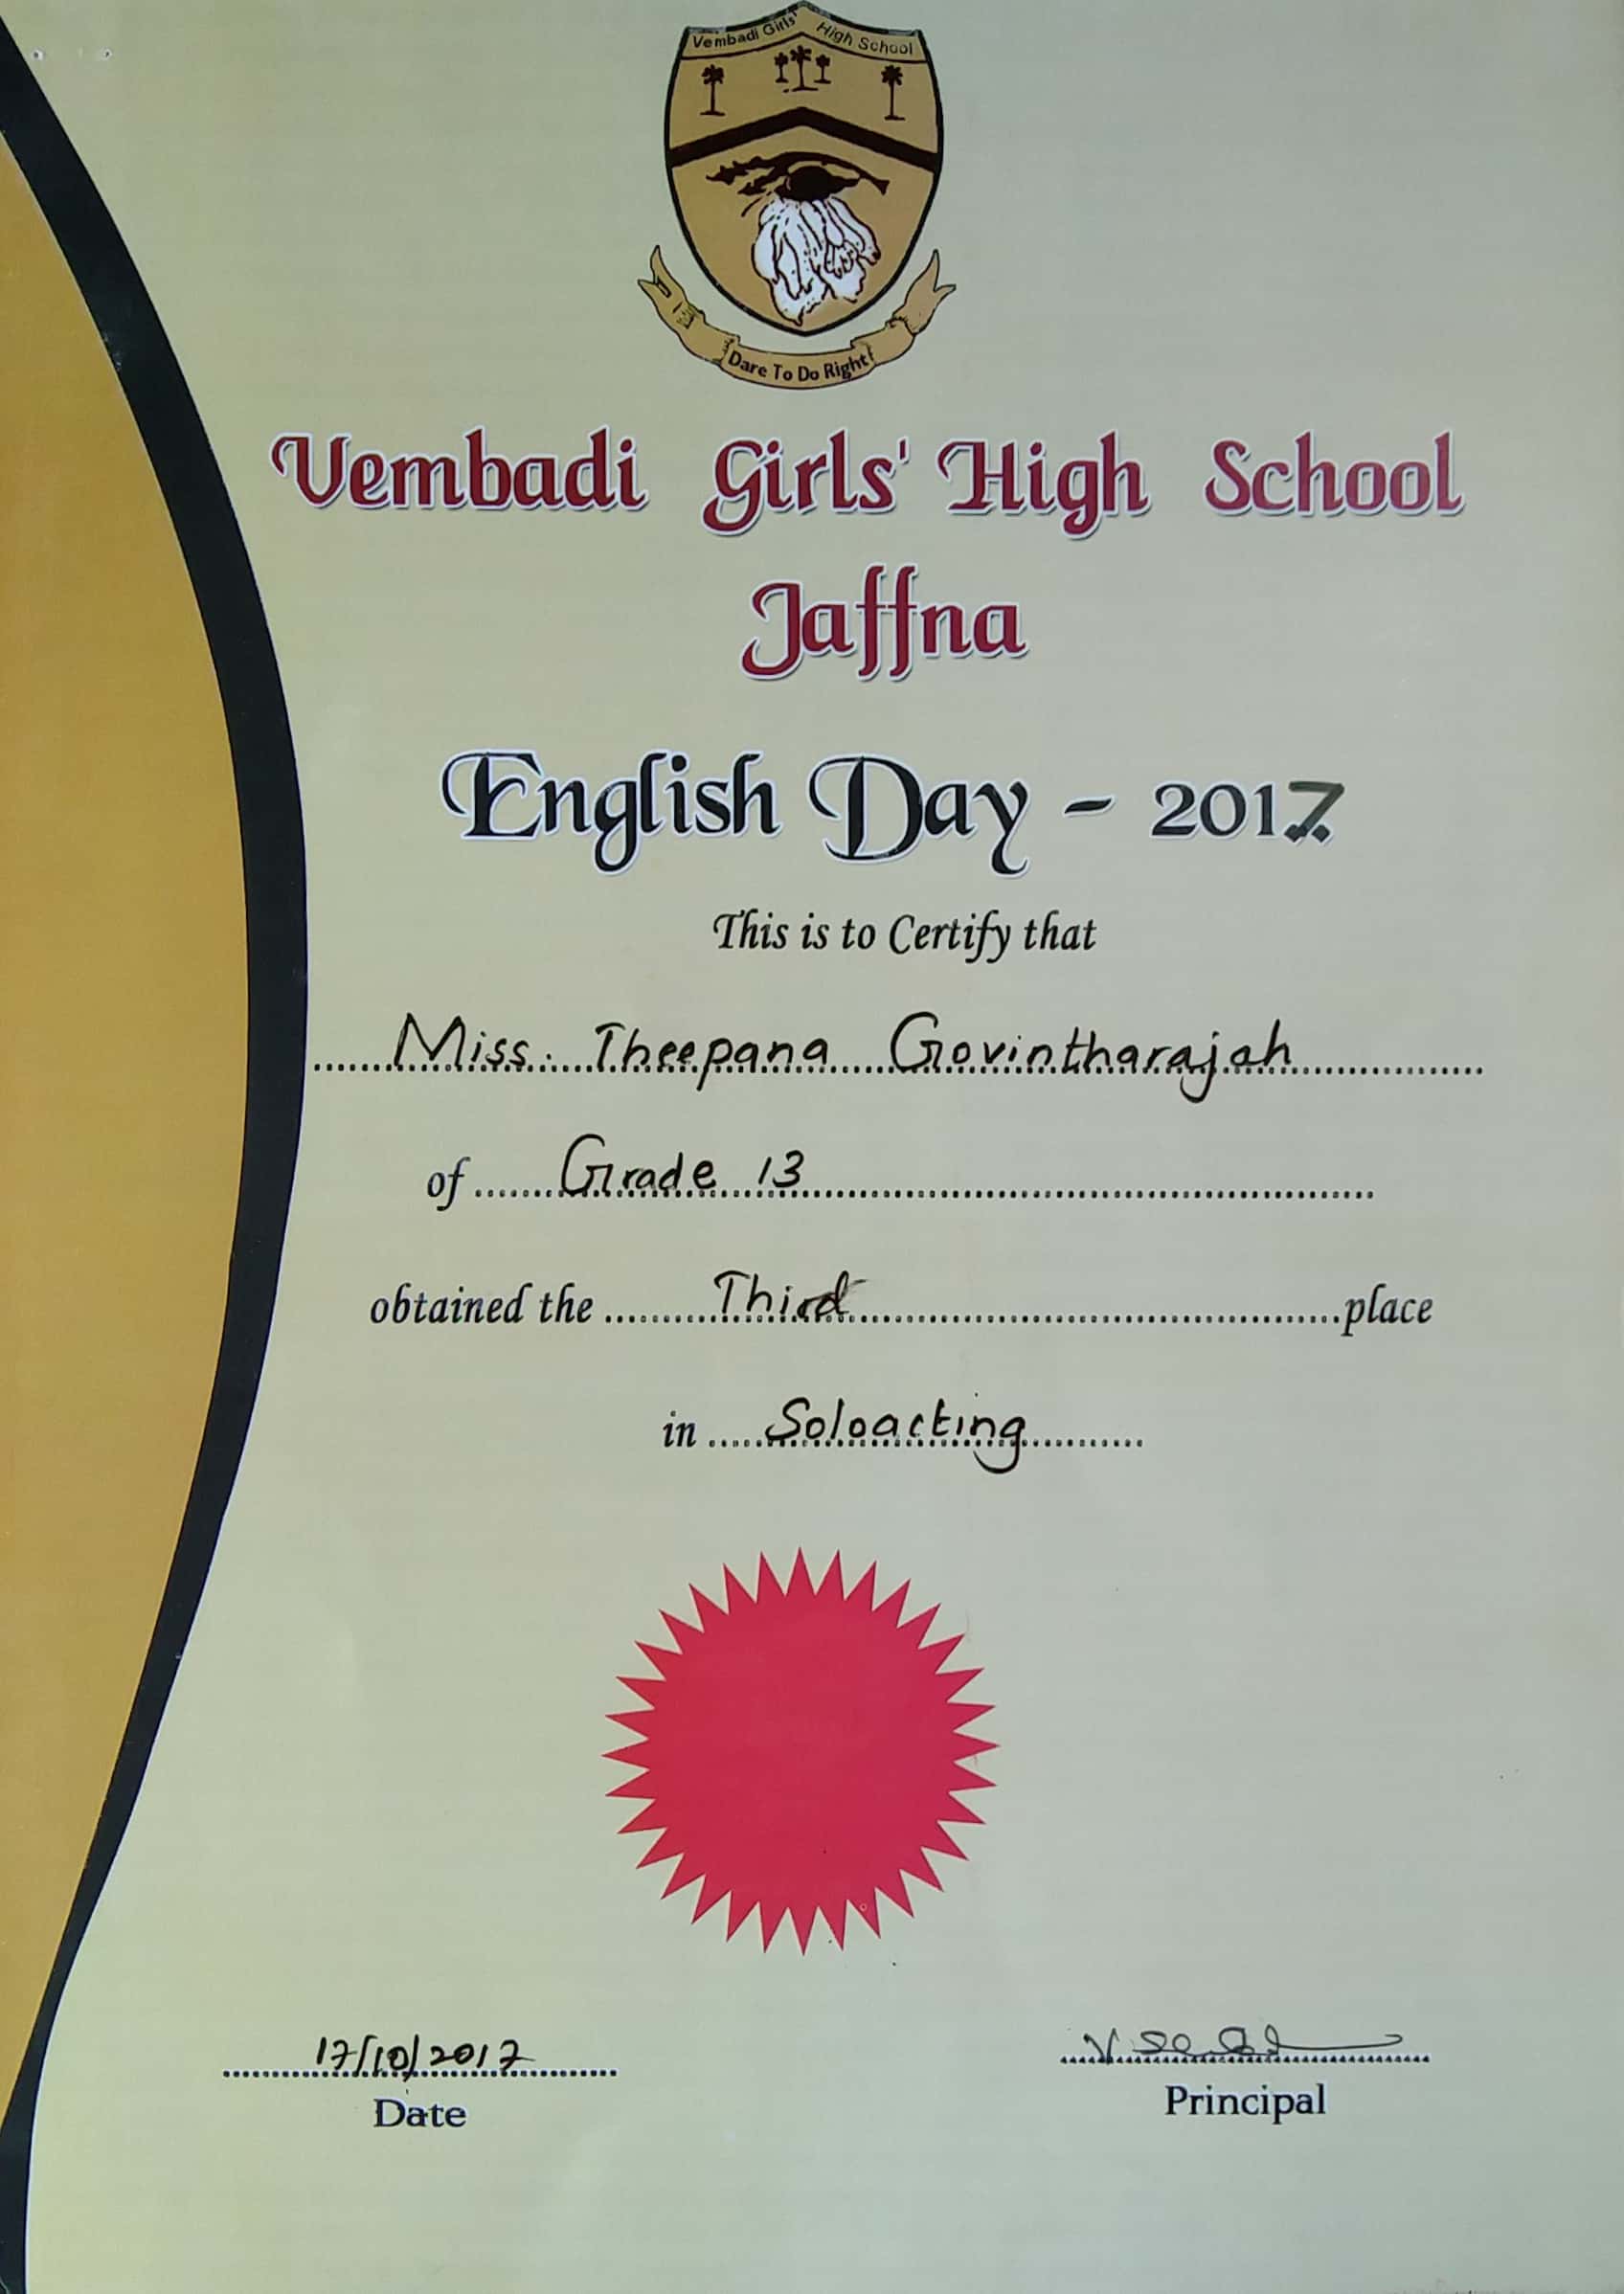 Vembadi Girls' High School
Dare To Do Right
Vembadi Girls' High School
Jaffna
English Day - 2017
This is to Certify that
Miss. Theepana Govintharajah
of Grade 13
obtained the Third place
in Soloacting
17/10/2017
Date
Principal